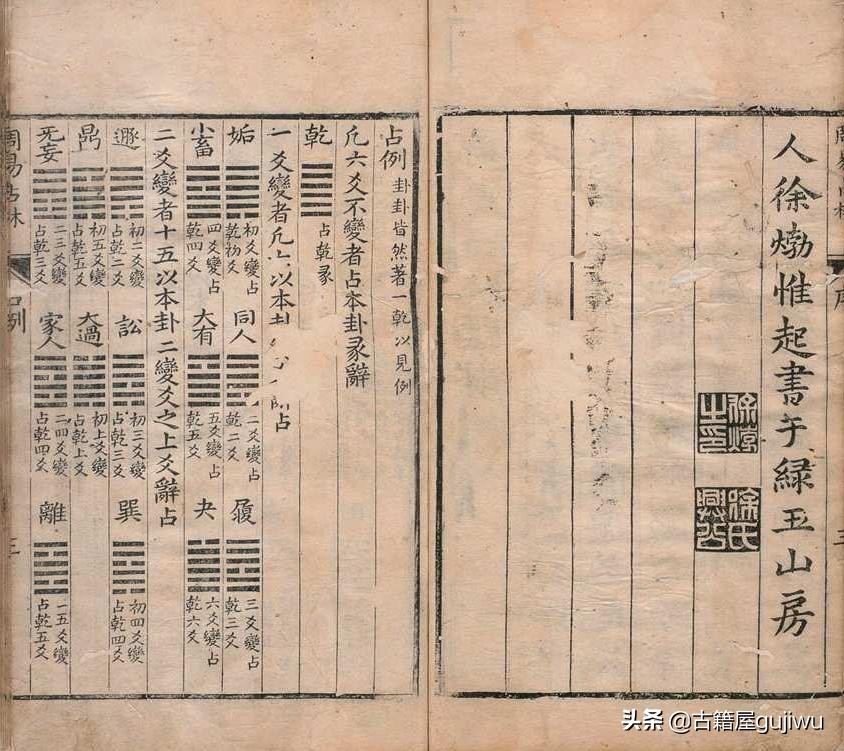 人徐𤊹惟起書于綠玉山房
徐𤊹之印
徐氏興公
占例 卦卦皆然著一乾以見例
凡六爻不變者占本卦彖辭
乾 占乾彖
一爻變者凡六以本卦 占
姤 初爻變占乾初爻 同人 二爻變占乾二爻 履 三爻變占乾三爻
小畜 四爻變占乾四爻 大有 五爻變占乾五爻 夬 六爻變占乾六爻
二爻變者十五以本卦二變爻之上爻辭占
遯 初二爻變占乾二爻 訟 初三爻變占乾三爻 巽 初四爻變占乾四爻
鼎 初五爻變占乾五爻 大過 初上爻變占乾上爻
无妄 二三爻變占乾三爻 家人 二四爻變占乾四爻 離 二五爻變占乾五爻
周易占林 占例 三
头条 @古籍屋gujiwu